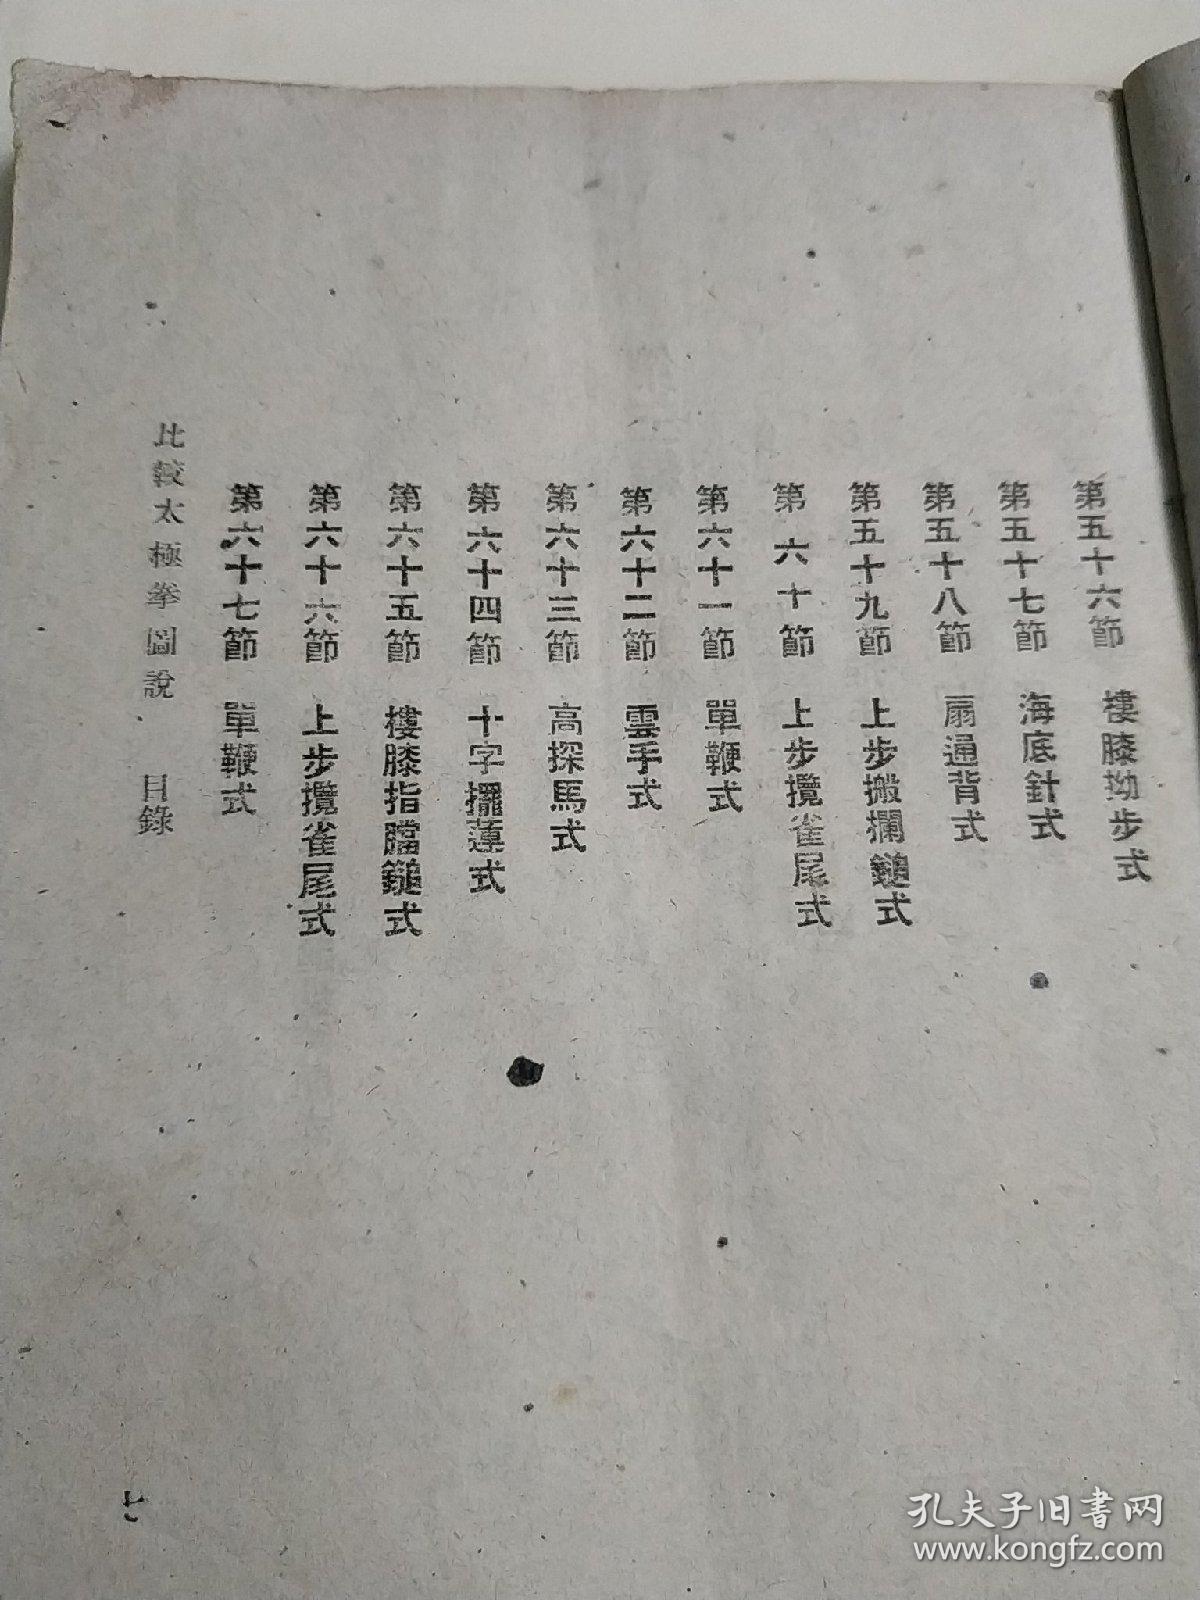 第五十六節 樓膝拗步式
第五十七節 海底針式
第五十八節 扇通背式
第五十九節 上步搬攔鎚式
第六十節 上步攬雀尾式
第六十一節 單鞭式
第六十二節 雲手式
第六十三節 高探馬式
第六十四節 十字擺蓮式
第六十五節 樓膝指膛鎚式
第六十六節 上步攬雀尾式
第六十七節 單鞭式
比較太極拳圖說 目錄
孔夫子旧书网
www.kongfz.com